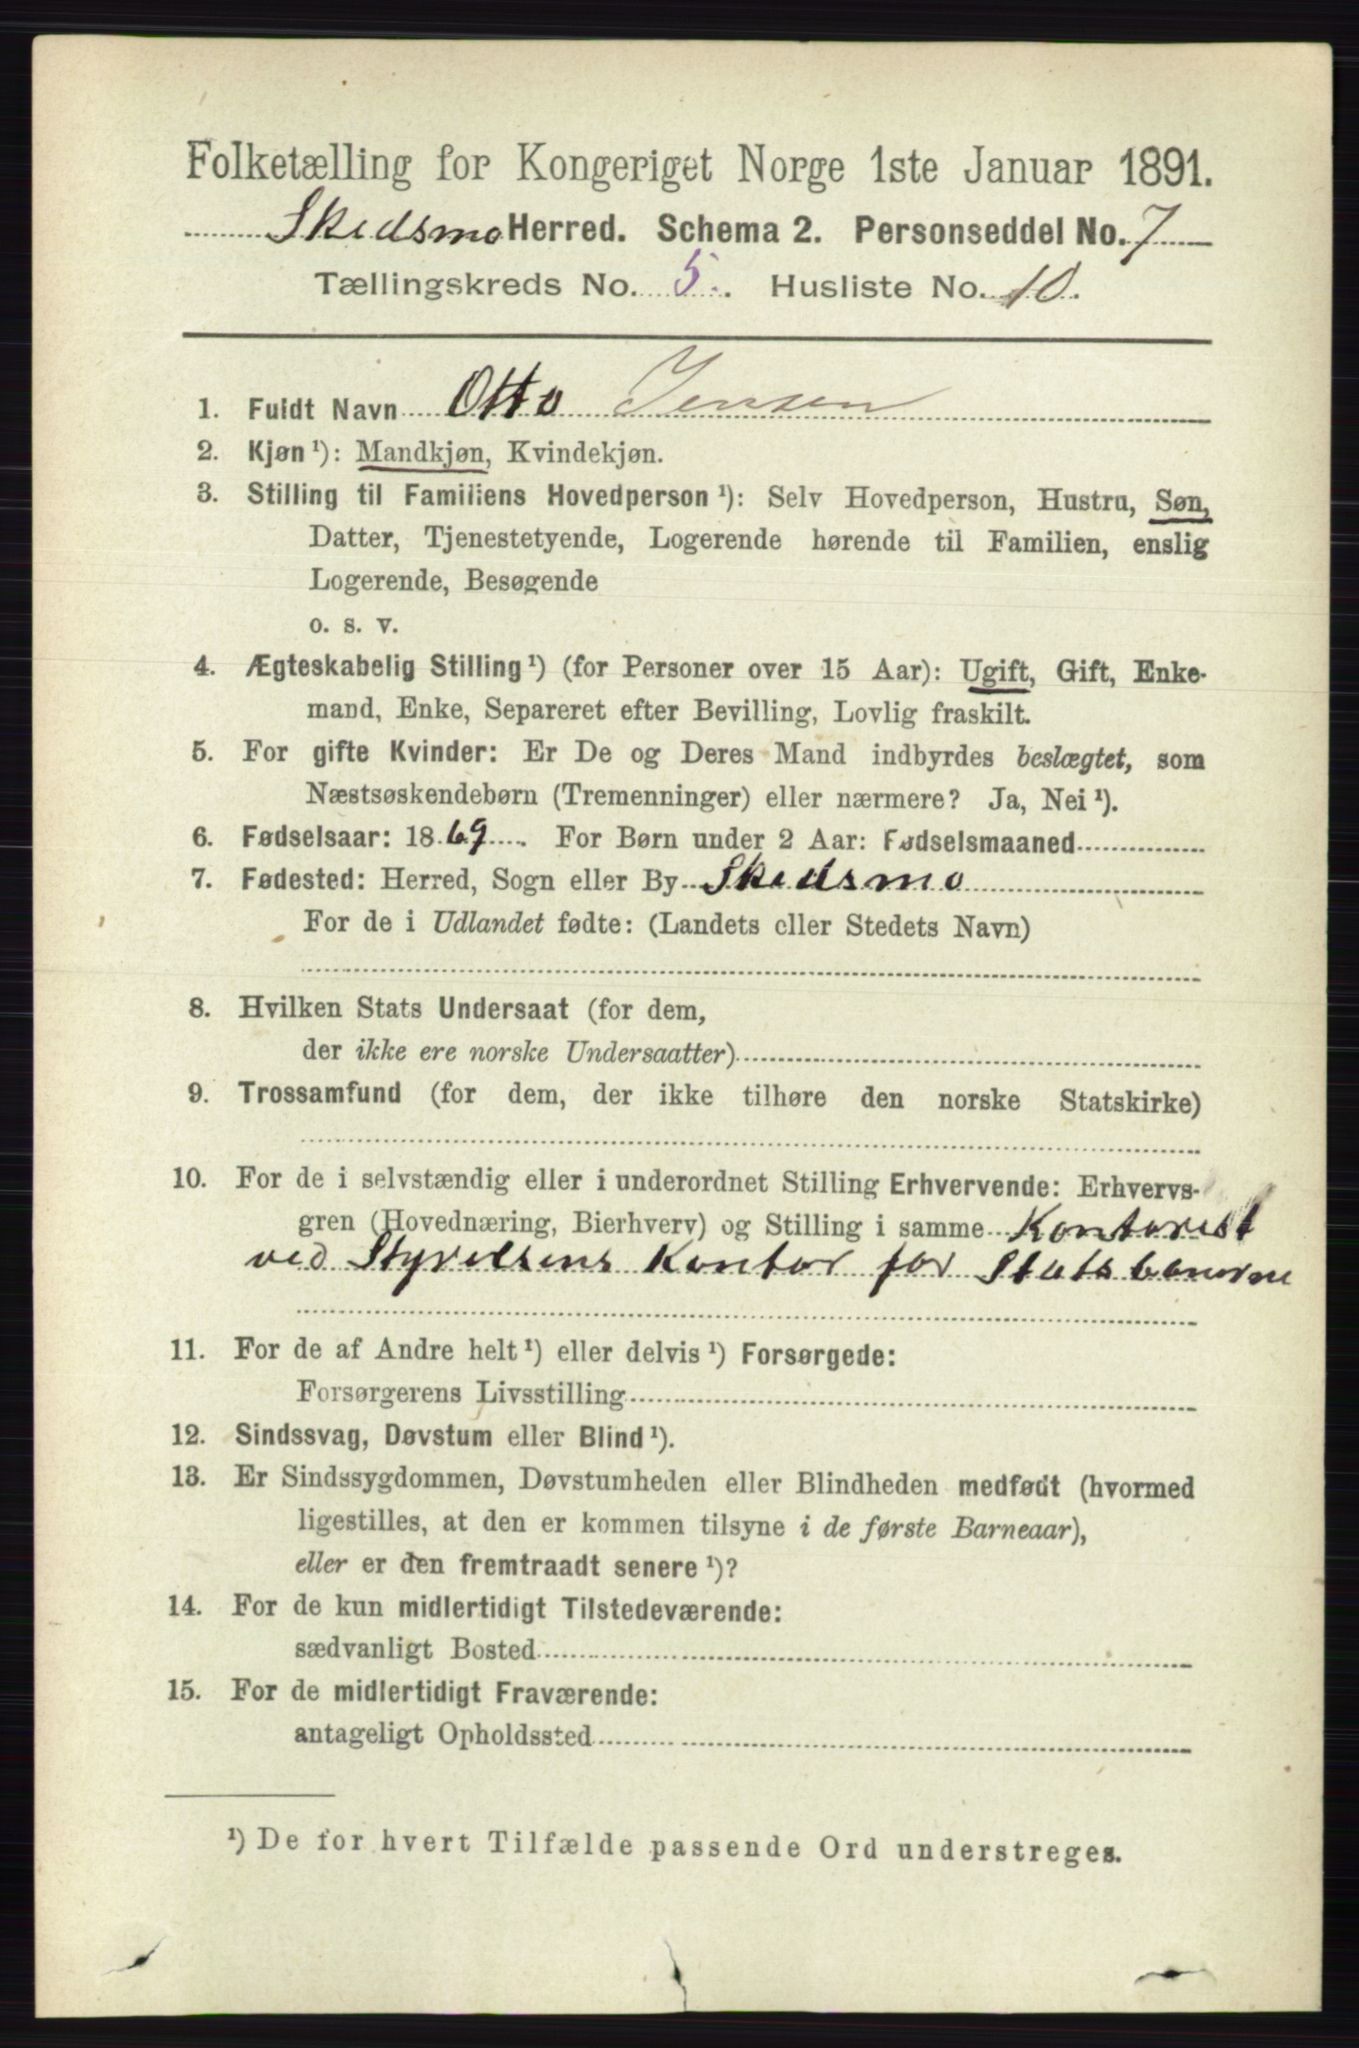 Folketælling for Kongeriget Norge 1ste Januar 1891.
Skedsmo Herred. Schema 2. Personseddel No. 7
Tællingskreds No. 5. Husliste No. 10.
1. Fuldt Navn Otto Jensen
2. Kjøn ¹): Mandkjøn, Kvindekjøn.
3. Stilling til Familiens Hovedperson ¹): Selv Hovedperson, Hustru, Søn,
Datter, Tjenestetyende, Logerende hørende til Familien, enslig
Logerende, Besøgende
o. s. v.
4. Ægteskabelig Stilling ¹) (for Personer over 15 Aar): Ugift, Gift, Enke-
mand, Enke, Separeret efter Bevilling, Lovlig fraskilt.
5. For gifte Kvinder: Er De og Deres Mand indbyrdes beslægtet, som
Næstsøskendebørn (Tremenninger) eller nærmere? Ja, Nei ¹).
6. Fødselsaar: 1869. For Børn under 2 Aar: Fødselsmaaned
7. Fødested: Herred, Sogn eller By Skedsmo
For de i Udlandet fødte: (Landets eller Stedets Navn)
8. Hvilken Stats Undersaat (for dem,
der ikke ere norske Undersaatter)
9. Trossamfund (for dem, der ikke tilhøre den norske Statskirke)
10. For de i selvstændig eller i underordnet Stilling Erhvervende: Erhvervs-
gren (Hovednæring, Bierhverv) og Stilling i samme Kontorist
ved Styrelsens Kontor for Statsbanerne
11. For de af Andre helt ¹) eller delvis ¹) Forsørgede:
Forsørgerens Livsstilling
12. Sindssvag, Døvstum eller Blind ¹).
13. Er Sindssygdommen, Døvstumheden eller Blindheden medfødt (hvormed
ligestilles, at den er kommen tilsyne i de første Barneaar),
eller er den fremtraadt senere ¹)?
14. For de kun midlertidigt Tilstedeværende:
sædvanligt Bosted
15. For de midlertidigt Fraværende:
antageligt Opholdssted
¹) De for hvert Tilfælde passende Ord understreges.